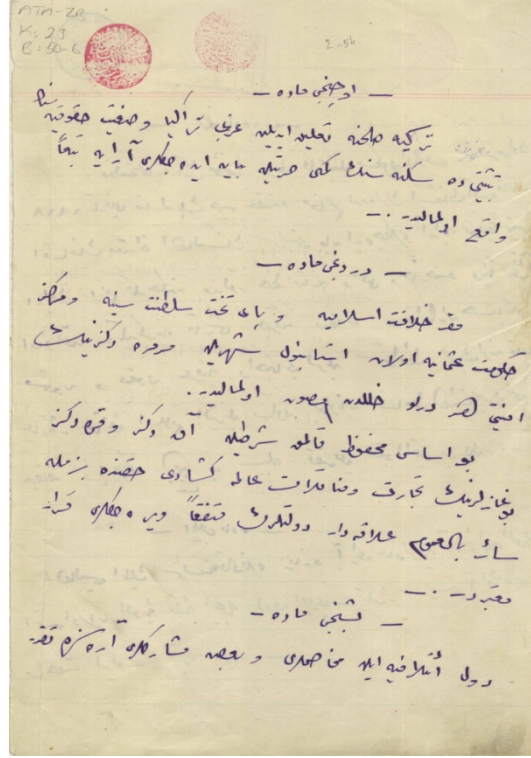 ATA-ZB
K: 23
B: 50-6
2-56
— اوچنجی ماده —
تركیه صلحنه تعلیق ایدیلن غربی تراکیا وضعیت حقوقیه سنك
تثبیتی ده سكنه سنك كمال حریتله بیان ایده جكلری آرایه تبعاً
واقع اولمالیدر .—
— دردنجی ماده —
مقر خلافت اسلامیه و پای تخت سلطنت سنیه و مركز
حكومت عثمانیه اولان استانبول شهریله مرمره دكزینك
امنیتی هر درلو خللدن مصون اولمالیدر.
بو اساس محفوظ قالمق شرطیله آق دكز و قره دكز
بوغازلرینك تجارت و مناقلات عالمه كشادی حقنده بزمله
سائر بالعموم علاقه دار دولتلرك متفقاً ویره جكلری قرار
معتبردر .—
— بشنجی ماده —
دول ائتلافیه ایله مخاصملری و بعض مشاركلری آره سنده تقرر